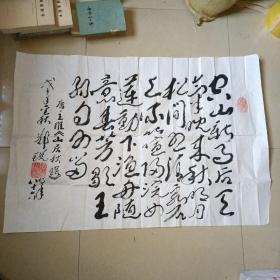 空山新雨后天
气晚来秋明月
松间照清泉石
上流竹喧归浣女
莲动下渔舟随
意春芳歇王
孙自可留
唐王维山居秋暝
金秋